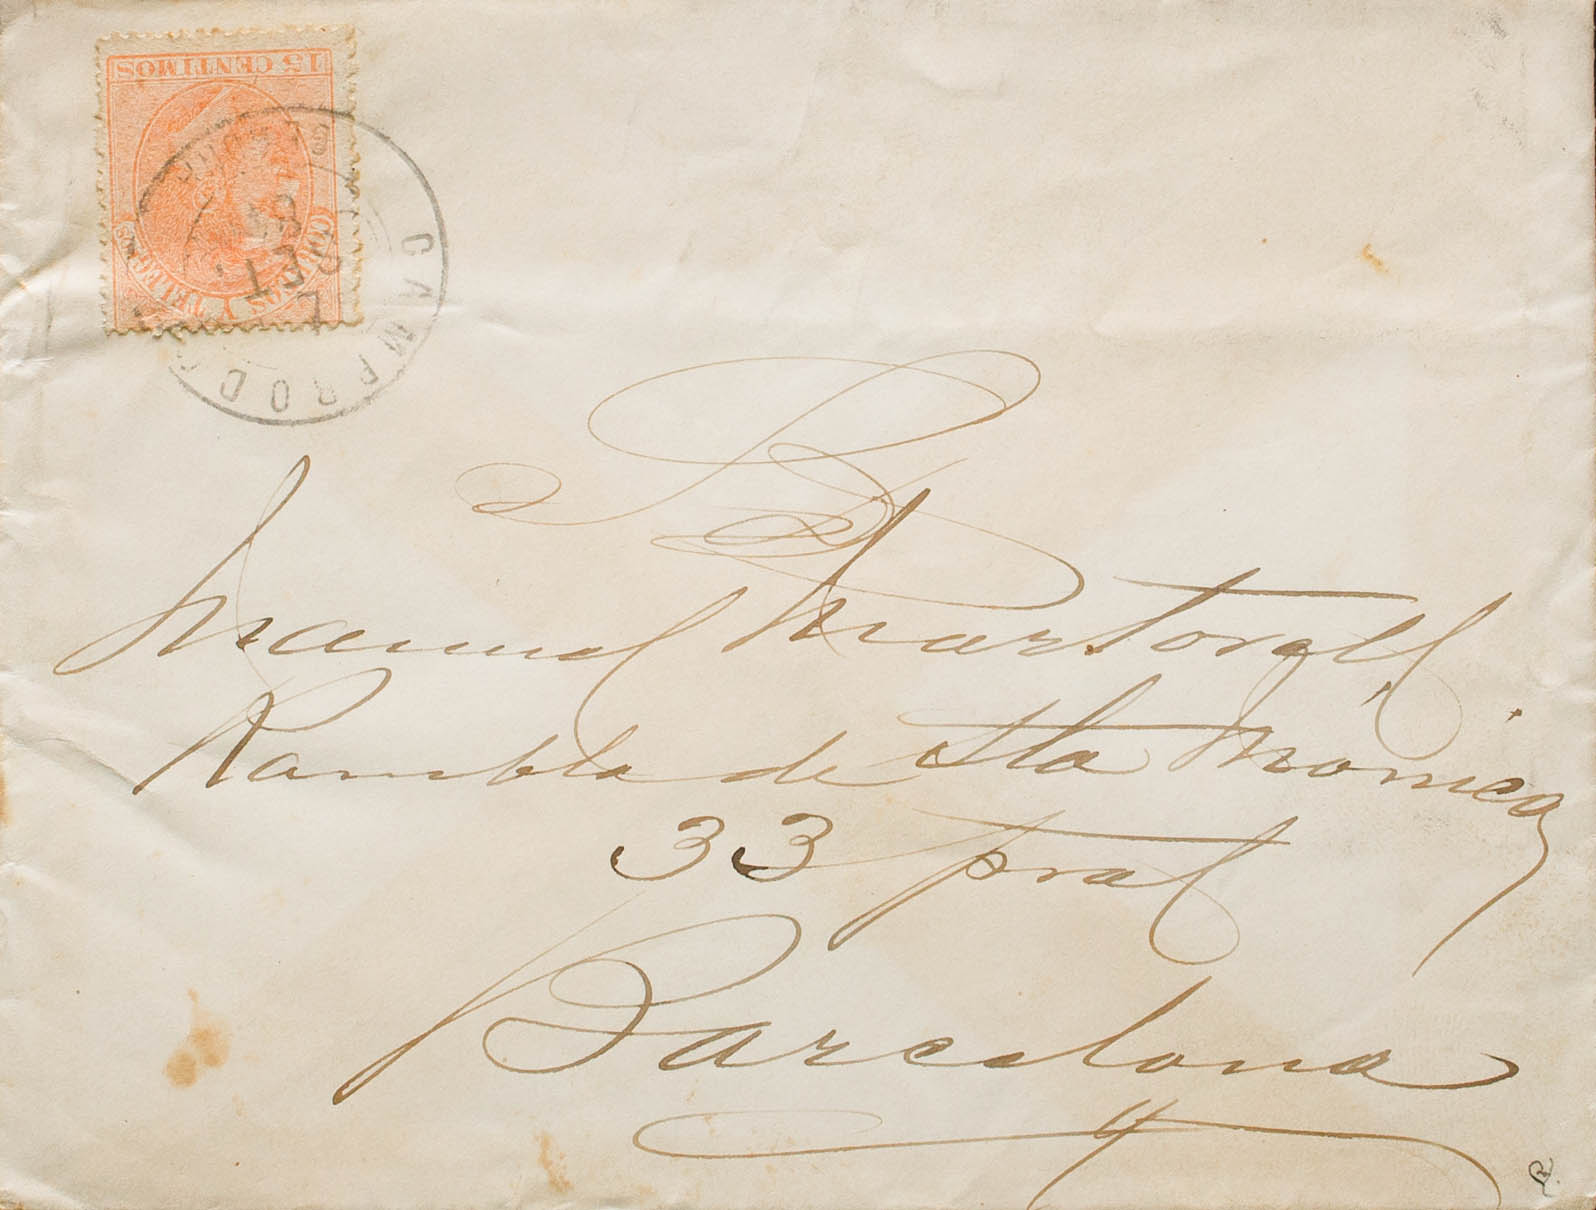 15 CENTIMOS
CORREOS Y TELEGRAFOS
CAMPRODON
7
SET
Sr. D.
Manuel Martorell
Rambla de Sta Mónica,
33 pral
Barcelona